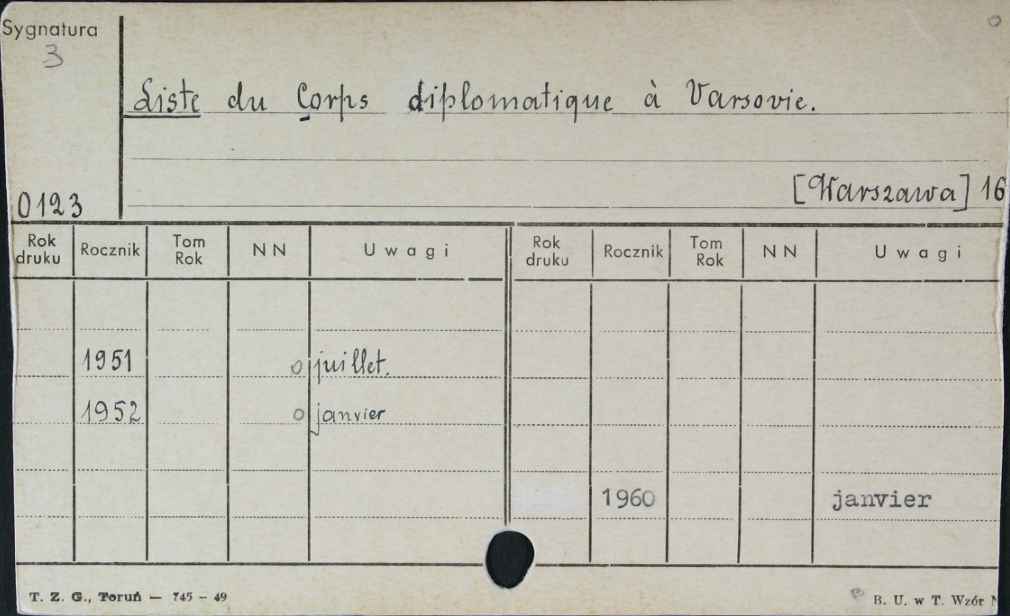 Sygnatura
3
Liste du Corps diplomatique à Varsovie.
[Warszawa] 16
0123
Rok druku Rocznik Tom Rok NN Uwagi Rok druku Rocznik Tom Rok NN Uwagi
1951 o juillet.
1952 o janvier
1960 janvier
T. Z. G., Toruń — 745 - 49
B. U. w T. Wzór N